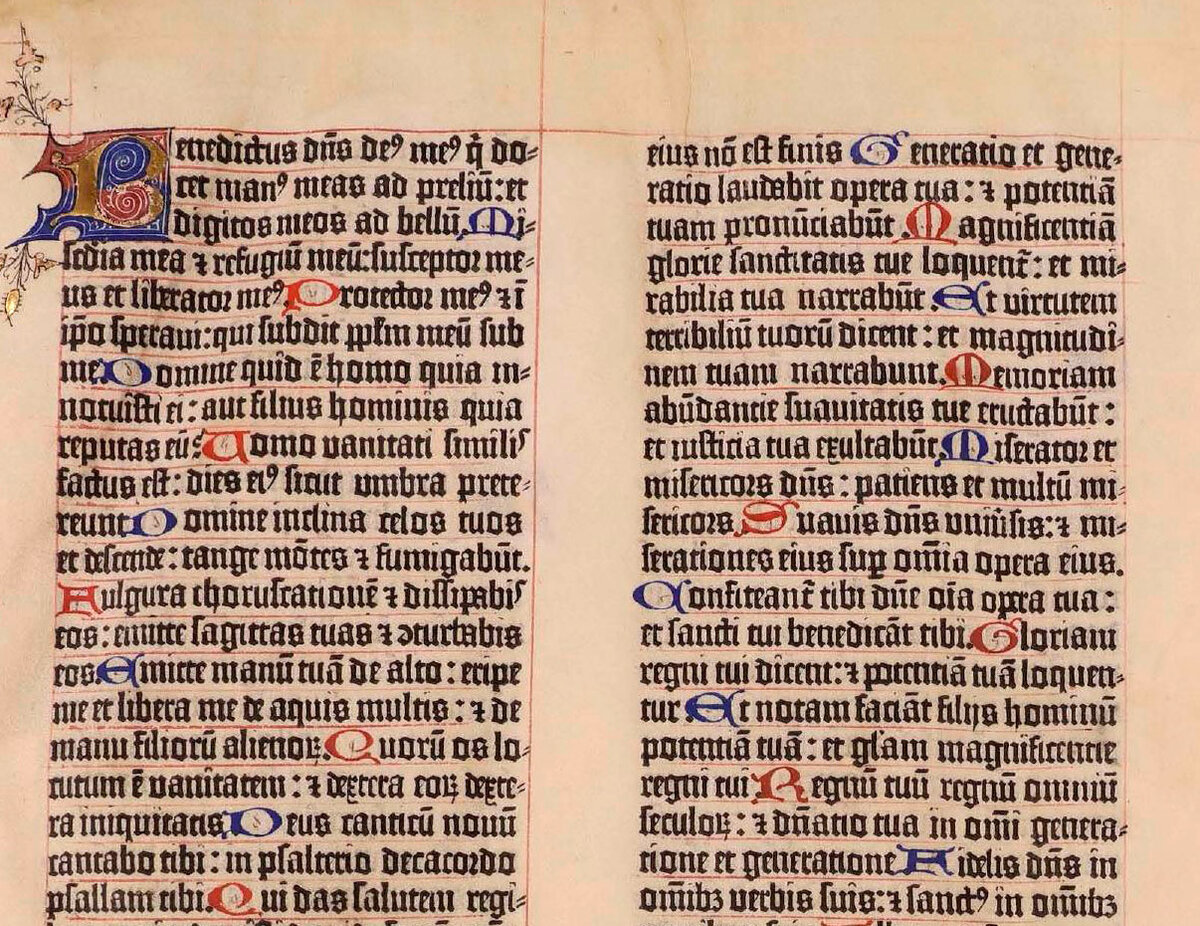 Benedictus dn̄s deꝰ meꝰ q̄ do=
cet manꝰ meas ad preliū: et
digitos meos ad bellū. Mi=
sc̄dia mea ⁊ refugiū meū: susceptor me=
us et liberator meꝰ. Protector meꝰ ⁊ ī
ip̄o speraui: qui subdit pp̄lm meū sub
me. Domine quid ē homo quia in=
notuisti ei: aut filius hominis quia
reputas eū: Homo vanitati similis
factus est: dies eiꝰ sicut vmbra prete=
reunt. Domine inclina celos tuos
et descende: tange mōtes ⁊ fumigabūt.
Fulgura choruscationē ⁊ dissipabis
eos: emitte sagittas tuas ⁊ ꝯturbabis
eos. Emitte manū tuā de alto: eripe
me et libera me de aquis multis: ⁊ de
manu filiorū alienoꝝ. Quorū os lo=
cutum ē vanitatem: ⁊ dextera eoꝝ dexte=
ra iniquitatis. Deus canticū nouū
cantabo tibi: in psalterio decacordo
psallam tibi. Qui das salutem regi=
eius nō est finis Generatio et gene=
ratio laudabit opera tua: ⁊ potentiā
tuam pronūciabūt. Magnificentiā
glorie sanctitatis tue loquent̄: et mi=
rabilia tua narrabūt. Et virtutem
terribiliū tuorū dicent: et magnitudi=
nem tuam narrabunt. Memoriam
abūdantie suauitatis tue eructabūt:
et iusticia tua exultabūt. Miserator et
misericors dn̄s: patiens et multū mi=
sericors. Suauis dn̄s vniūsis: ⁊ mi=
serationes eius suꝑ om̄ia opera eius.
Confiteant̄ tibi dn̄e oīa oꝑa tua:
et sancti tui benedicāt tibi. Gloriam
regni tui dicent: ⁊ potentiā tuā loquen=
tur. Et notam faciāt filijs hominū
potentiā tuā: et glām magnificentie
regni tui Regnū tuū regnū omniū
seculoꝝ: ⁊ dn̄atio tua in om̄i genera=
tione et generatione Fidelis dn̄s in
om̄ibꝫ verbis suis: ⁊ sanctꝰ in om̄ibꝫ